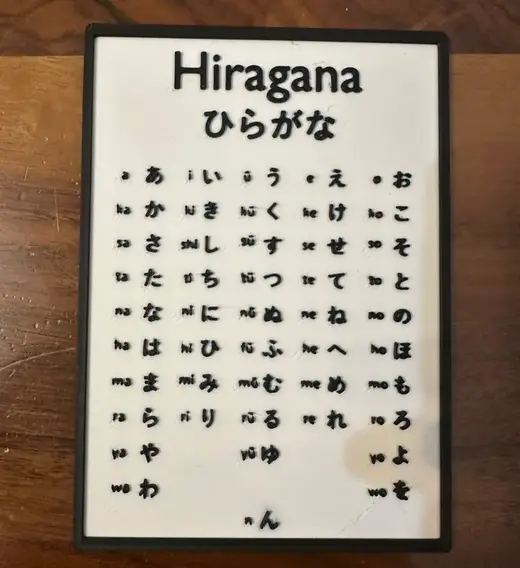 Hiragana
ひらがな
a あ i い ū う e え o お
ka か ki き kū く ke け ko こ
sa さ shi し sū す se せ so そ
ta た ti ち tū つ te て to と
na な ni に nū ぬ ne ね no の
ha は hi ひ fū ふ he へ ho ほ
ma ま mi み mū む me め mo も
ra ら ri り rū る re れ ro ろ
ya や yū ゆ yo よ
wa わ wo を
n ん